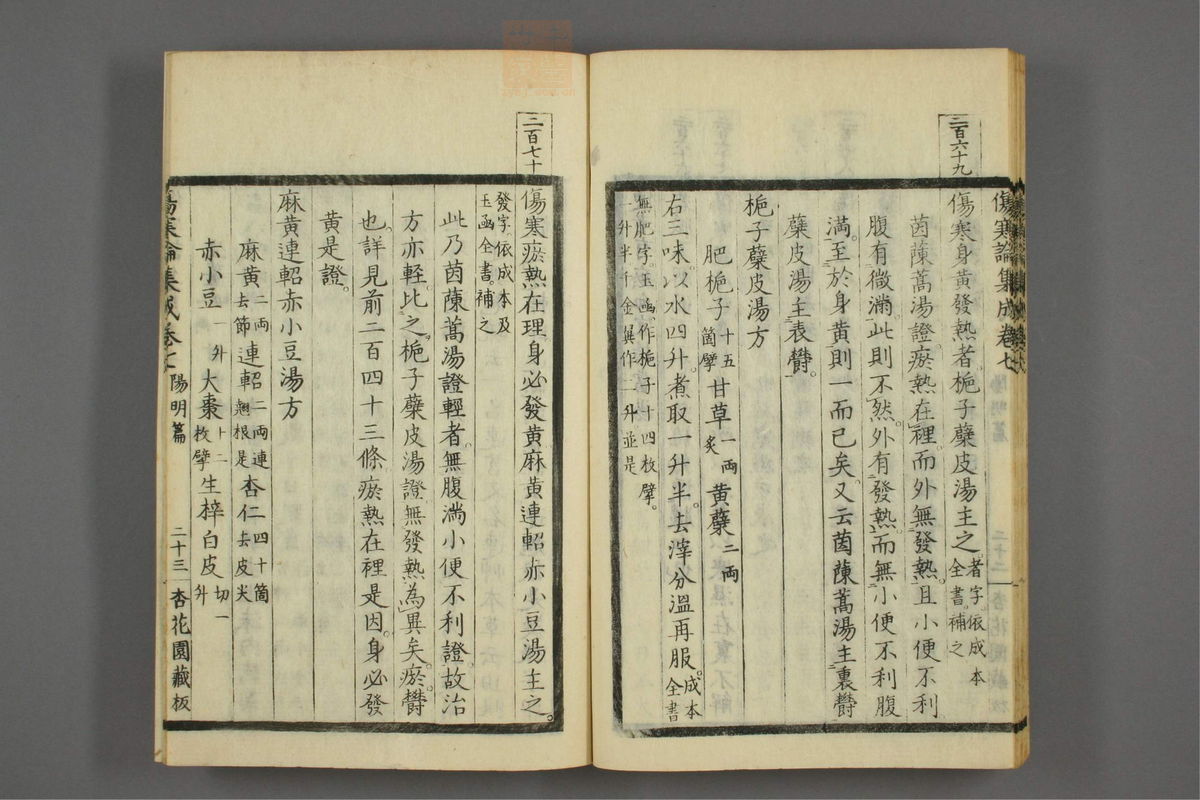 傷寒論集成卷七
二百六十九
傷寒身黃發熱者梔子蘗皮湯主之。者字依成本全書補之
茵蔯蒿湯證瘀熱在裡而外無發熱且小便不利
腹有微滿此則不然外有發熱而無小便不利腹
滿至於身黃則一而已矣又云茵蔯蒿湯主裏鬱
蘗皮湯主表鬱
梔子蘗皮湯方
肥梔子十五箇擘 甘草一兩炙 黃蘗二兩
右三味以水四升煮取一升半去滓分溫再服。成本全書
無肥字玉函作梔子十四枚擘
一升半千金巽作二升並是
二百七十
傷寒瘀熱在理身必發黃麻黃連軺赤小豆湯主之。
發字依成本及玉函全書補之
此乃茵蔯蒿湯證輕者無腹滿小便不利證故治
方亦輕比之梔子蘗皮湯證無發熱為異矣瘀鬱
也詳見前二百四十三條瘀熱在裡是因身必發
黃是證。
麻黃連軺赤小豆湯方
麻黃二兩去節 連軺二兩連翹根是 杏仁四十箇去皮尖
赤小豆一升 大棗十二枚擘 生梓白皮切一升
傷寒論集成卷七 陽明篇 二十三 杏花園藏板